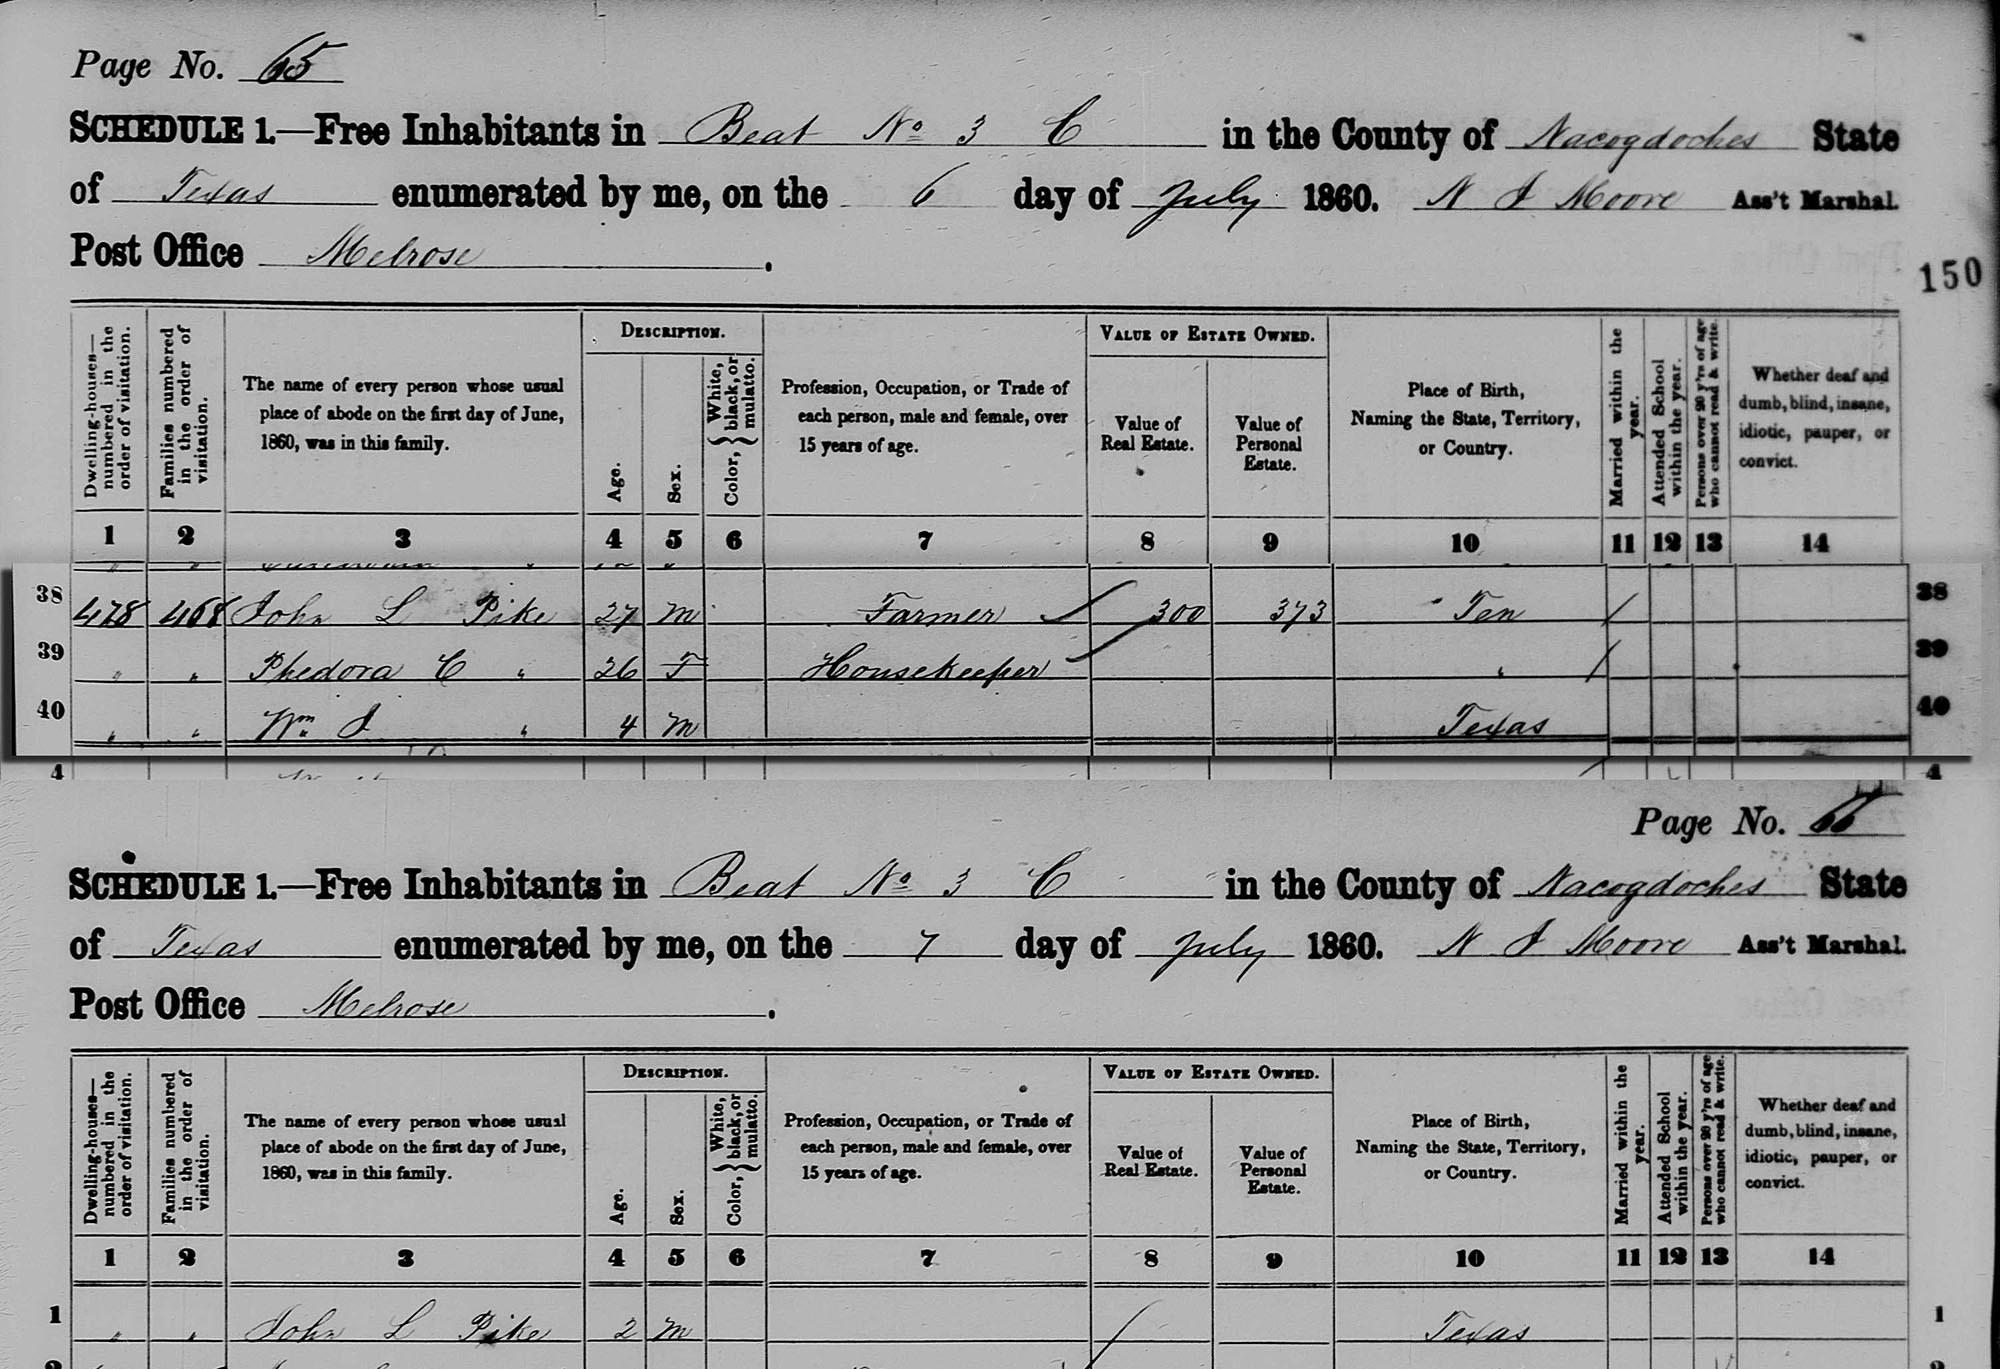 Page No. 65
SCHEDULE 1.—Free Inhabitants in Beat No 3 C in the County of Nacogdoches State
of Texas enumerated by me, on the 6 day of July 1860. N J Moore Ass't Marshal.
Post Office Melrose.
150
Dwelling-houses—numbered in the order of visitation.
Families numbered in the order of visitation.
The name of every person whose usual place of abode on the first day of June, 1860, was in this family.
DESCRIPTION.
Age.
Sex.
Color, { White, black, or mulatto.
Profession, Occupation, or Trade of each person, male and female, over 15 years of age.
VALUE OF ESTATE OWNED.
Value of Real Estate.
Value of Personal Estate.
Place of Birth, Naming the State, Territory, or Country.
Married within the year.
Attended School within the year.
Persons over 20 y'rs of age who cannot read & write.
Whether deaf and dumb, blind, insane, idiotic, pauper, or convict.
1 2 3 4 5 6 7 8 9 10 11 12 13 14
38 478 468 John L Pike 27 m Farmer 300 373 Ten / 38
39 " " Phedora C " 26 F Housekeeper " / 39
40 " " Wm J " 4 m Texas 40
4 4
Page No. 66
SCHEDULE 1.—Free Inhabitants in Beat No 3 C in the County of Nacogdoches State
of Texas enumerated by me, on the 7 day of July 1860. N J Moore Ass't Marshal.
Post Office Melrose.
Dwelling-houses—numbered in the order of visitation.
Families numbered in the order of visitation.
The name of every person whose usual place of abode on the first day of June, 1860, was in this family.
DESCRIPTION.
Age.
Sex.
Color, { White, black, or mulatto.
Profession, Occupation, or Trade of each person, male and female, over 15 years of age.
VALUE OF ESTATE OWNED.
Value of Real Estate.
Value of Personal Estate.
Place of Birth, Naming the State, Territory, or Country.
Married within the year.
Attended School within the year.
Persons over 20 y'rs of age who cannot read & write.
Whether deaf and dumb, blind, insane, idiotic, pauper, or convict.
1 2 3 4 5 6 7 8 9 10 11 12 13 14
1 " " John L Pike 2 m Texas 1